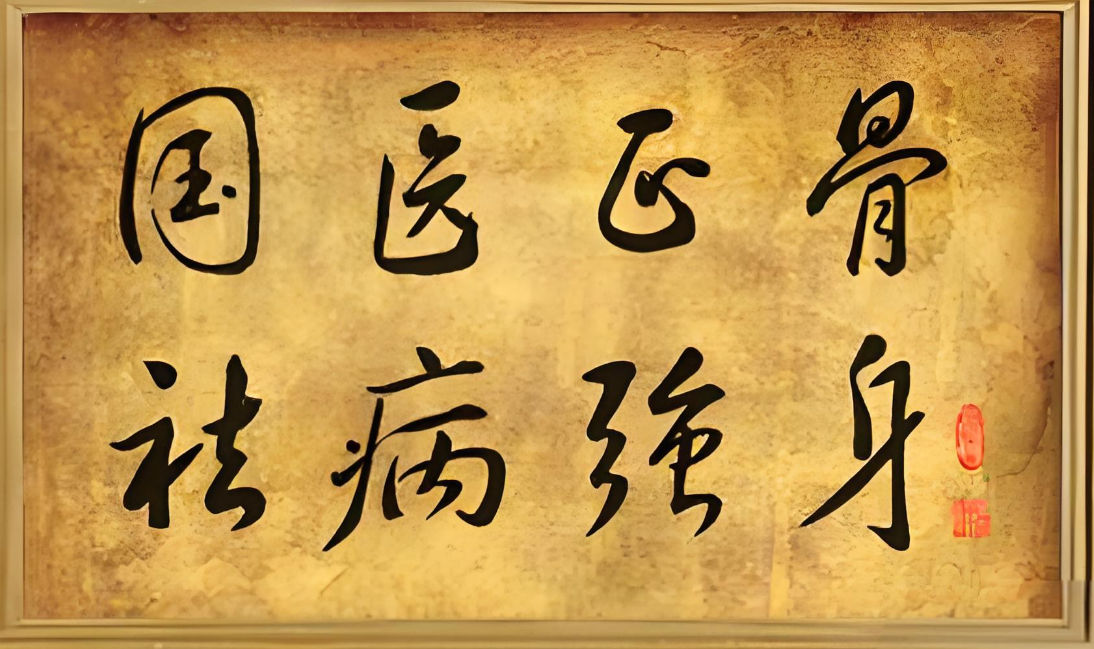 国医正骨
祛病强身